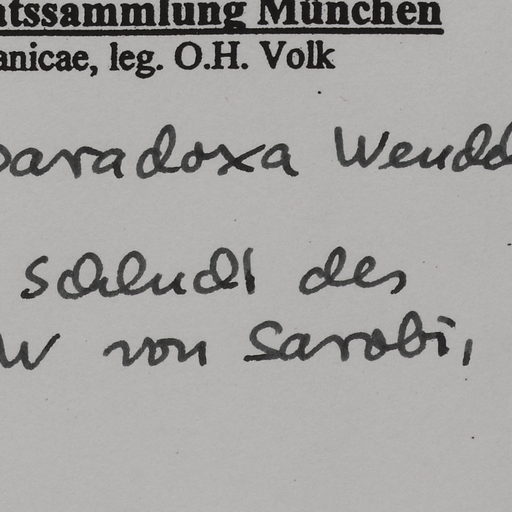 atssammlung München
anicae, leg. O.H. Volk
paradoxa Wendd
Schlucht des
W von Sarobi,